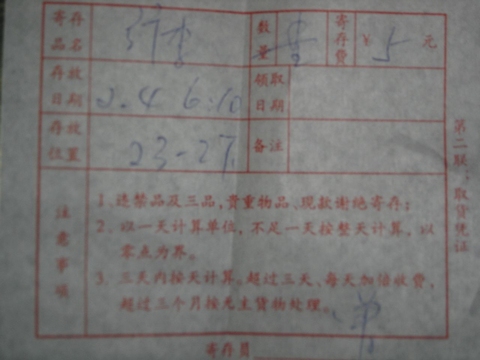 寄存品名 行李 数量 寄存费 ¥ 5 元
存放日期 2.4 6:10 领取日期
存放位置 23-27 备注
注意事项
1、违禁品及三品，贵重物品、现款谢绝寄存；
2、以一天计算单位，不足一天按整天计算，以
零点为界。
3、三天内按天计算。超过三天、每天加倍收费，
超过三个月按无主货物处理。
寄存员
第二联：取货凭证